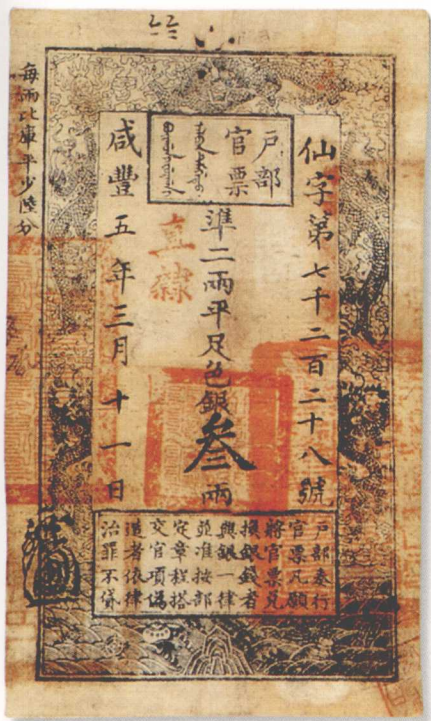 户部
官票
仙字第七千二百二十八號
準二兩平足色銀叁兩
直隸
咸豐五年三月十一日
每兩比庫平少陸分
戶部奏行
官票凡願
將官票兌
換銀錢者
與銀一律
並准按部
定章程搭
交官項偽
造者依律
治罪不貸